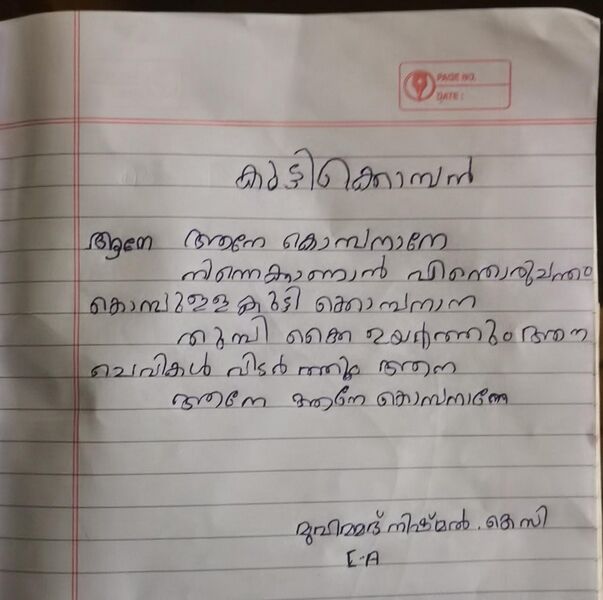 PAGE NO.
DATE :
കുട്ടിക്കൊമ്പൻ
ആനേ ആനേ കൊമ്പനാനേ
നിന്നെക്കാണാൻ എന്തൊരുചന്തം
കൊമ്പുള്ള കുട്ടി ക്കൊമ്പനാന
തുമ്പി കൈ ഉയർത്തും ആന
ചെവികൾ വിടർത്തും ആന
ആനേ ആനേ കൊമ്പനാനേ
നിഷ്മൽ . കെ സി